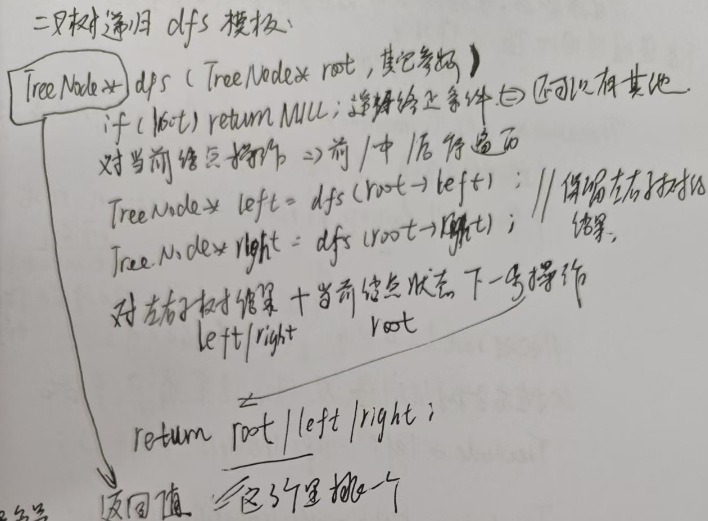 二叉树递归 dfs 模板:
TreeNode* dfs (TreeNode* root, 其它参数)
if (!root) return NULL; 递归终止条件 => 还可以有其他
对当前结点操作 => 前/中/后序遍历
TreeNode* left = dfs (root->left) ; // 保留左右子树的
TreeNode* right = dfs (root->right) ; 结果,
对左右子树结果 + 当前结点状态 下一步操作
left/right root
return root/left/right ;
返回值 这3个里挑一个